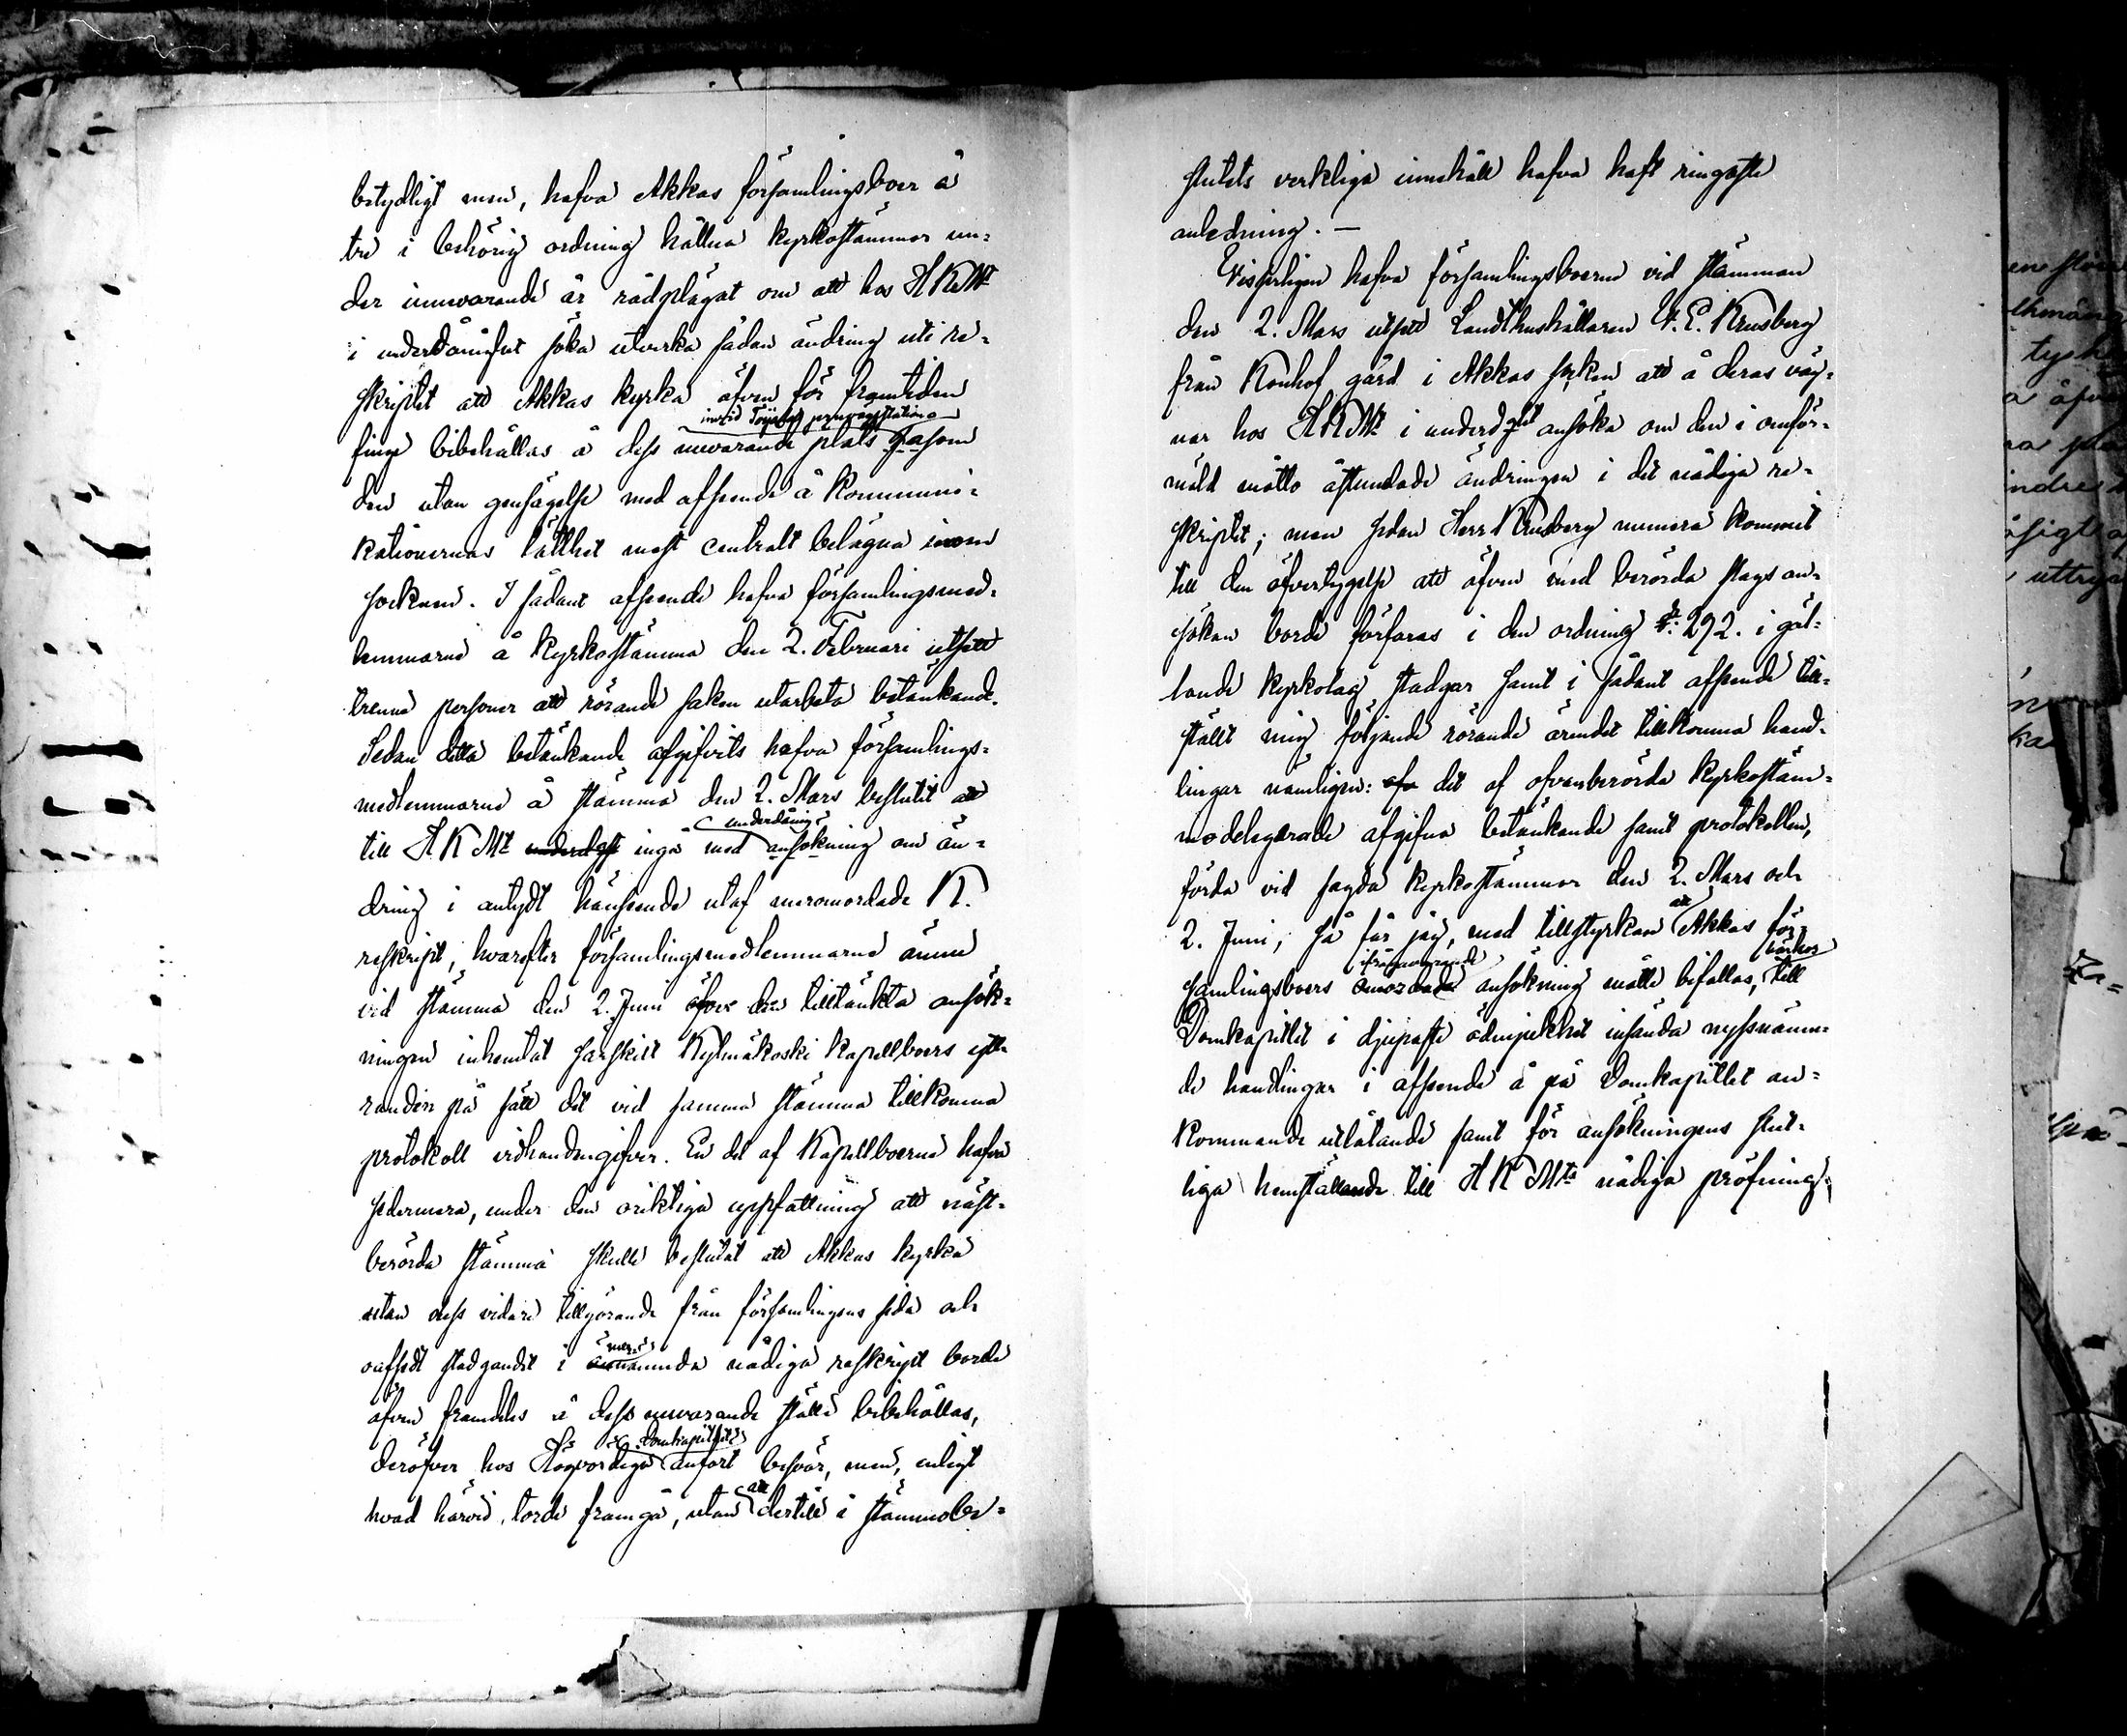 betydligt men, hafva Akkas församlingsboer å
tre i behörig ordning hållna kyrkostämmor un-
der innevarande år rådplägat om att hos H K Mt
i underdånighet söka utverka sådan ändring uti re-
skriptet att Akkas kyrka äfven för framtiden
invid Toijala jernvägsstation
finge bibehållas å dess nuvarande plats såsom
den utan gensägelse med afseende å kommuni-
kationernas lätthet mest centralt belägna inom
socknen. I sådant afseende hafva församlingsmed-
lemmarne å kyrkostämma den 2. Februari utsett
trenne personer att rörande saken utarbeta betänkande.
Sedan detta betänkande afgifvits hafva församlings-
medlemmarne å stämma den 2. Mars beslutit att
underdånig
till H K Mt underdgt ingå med ansökning om än-
dring i antydt hänseende utaf meromordade K.
reskript, hvarefter församlingsmedlemmarne ännu
vid stämma den 2. Juni öfver den tilltänkta ansök-
ningen inhemtat särskilt Kylmäkoski kapellboers ytt-
randen på sätt det vid samma stämma tillkomna
protokoll vidhandengifver. En del af Kapellboerne hafva
sedermera, under den oriktiga uppfattning att näst-
berörda stämma skulle beslutat att Akkas kyrka
utan dess vidare tillgörande från församlingens sida och
mer
oafsedt stadgandet i nämnda nådiga reskript borde
äfven framdeles å dess nuvarande ställe bibehållas,
Domkapitlet
deröfver hos Högvördiga anfört besvär, men, enligt
att
hvad härvid torde framgå, utan dertill i stämmobe-
slutets verkliga innehåll hafva haft ringaste
anledning. —
Visserligen hafva församlingsboerne vid stämman
den 2. Mars utsett Landthushållaren V. E. Krusberg
från Konhof gård i Akkas socken att å deras väg-
nar hos H K Mt i underdght ansöka om den i omför-
mäld måtto åstundade ändringen i det nådiga re-
skriptet; men sedan Herr Krusberg numera kommit
till den öfvertygelse att äfven med berörda slags an-
sökan borde förfaras i den ordning §. 292. i gäl-
lande kyrkolag stadgar samt i sådant afseende till-
ställt mig följande rörande ärendet tillkomna hand-
lingar nämligen: det af ofvanberörda kyrkostäm-
modelegerade afgifna betänkande samt protokollen,
förda vid sagda kyrkostämmor den 2. Mars och
att
2. Juni, så får jag, med tillstyrkan Akkas för-
ifrågavarande härhos
samlingsboers omordade ansökning måtte bifallas, till
Domkapitlet i djupaste ödmjukhet insända nyssnämn-
de handlingar i afseende å på Domkapitlet an-
kommande utlåtande samt för ansökningens slut-
liga hemställande till H K Mts nådiga pröfning.